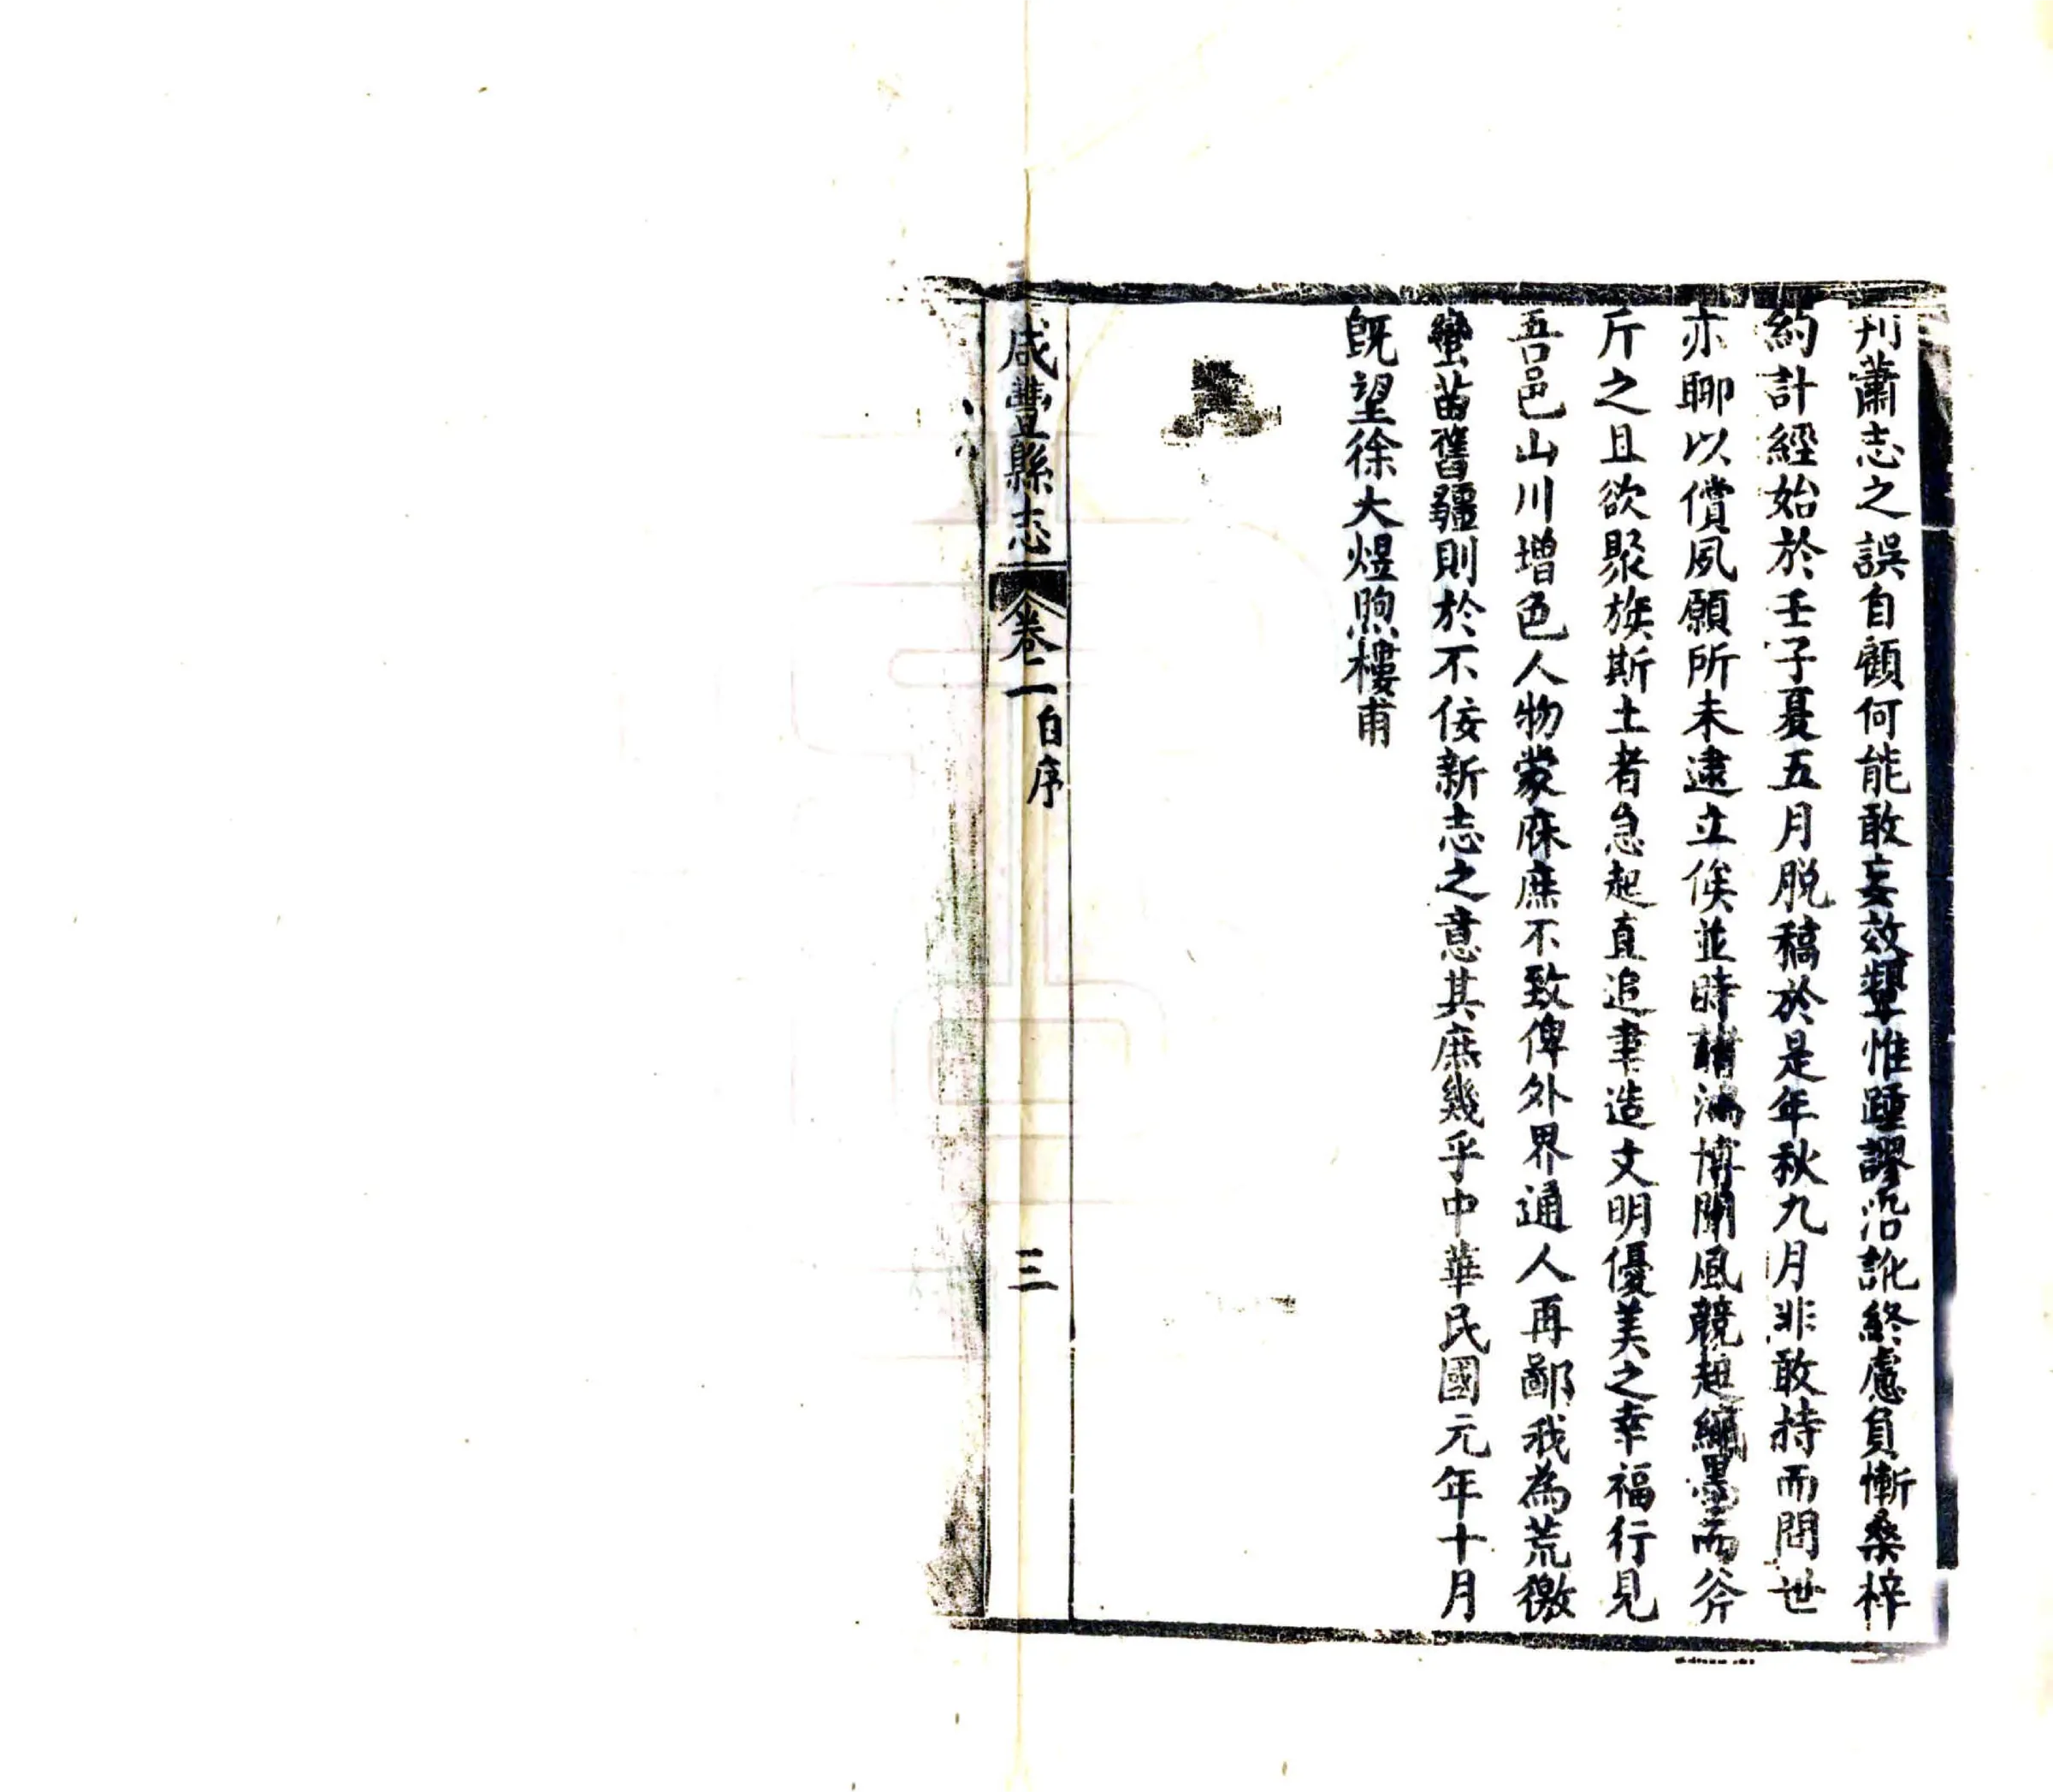 刋蕭志之誤自顧何能敢妄效顰惟踵謬沿訛終慮負慚桑梓
約計經始於壬子夏五月脱稿於是年秋九月非敢持而問世
亦聊以償夙願所未逮立俟並時諸鴻博聞風競起繩墨而斧
斤之且欲聚族斯土者急起直追聿造文明優美之幸福行見
吾邑山川增色人物蒙庥庶不致俾外界通人再鄙我為荒徼
蠻苗舊疆則於不佞新志之意其庶幾乎中華民國元年十月
既望徐大煜煦樓甫
咸豐縣志
卷一
自序
三